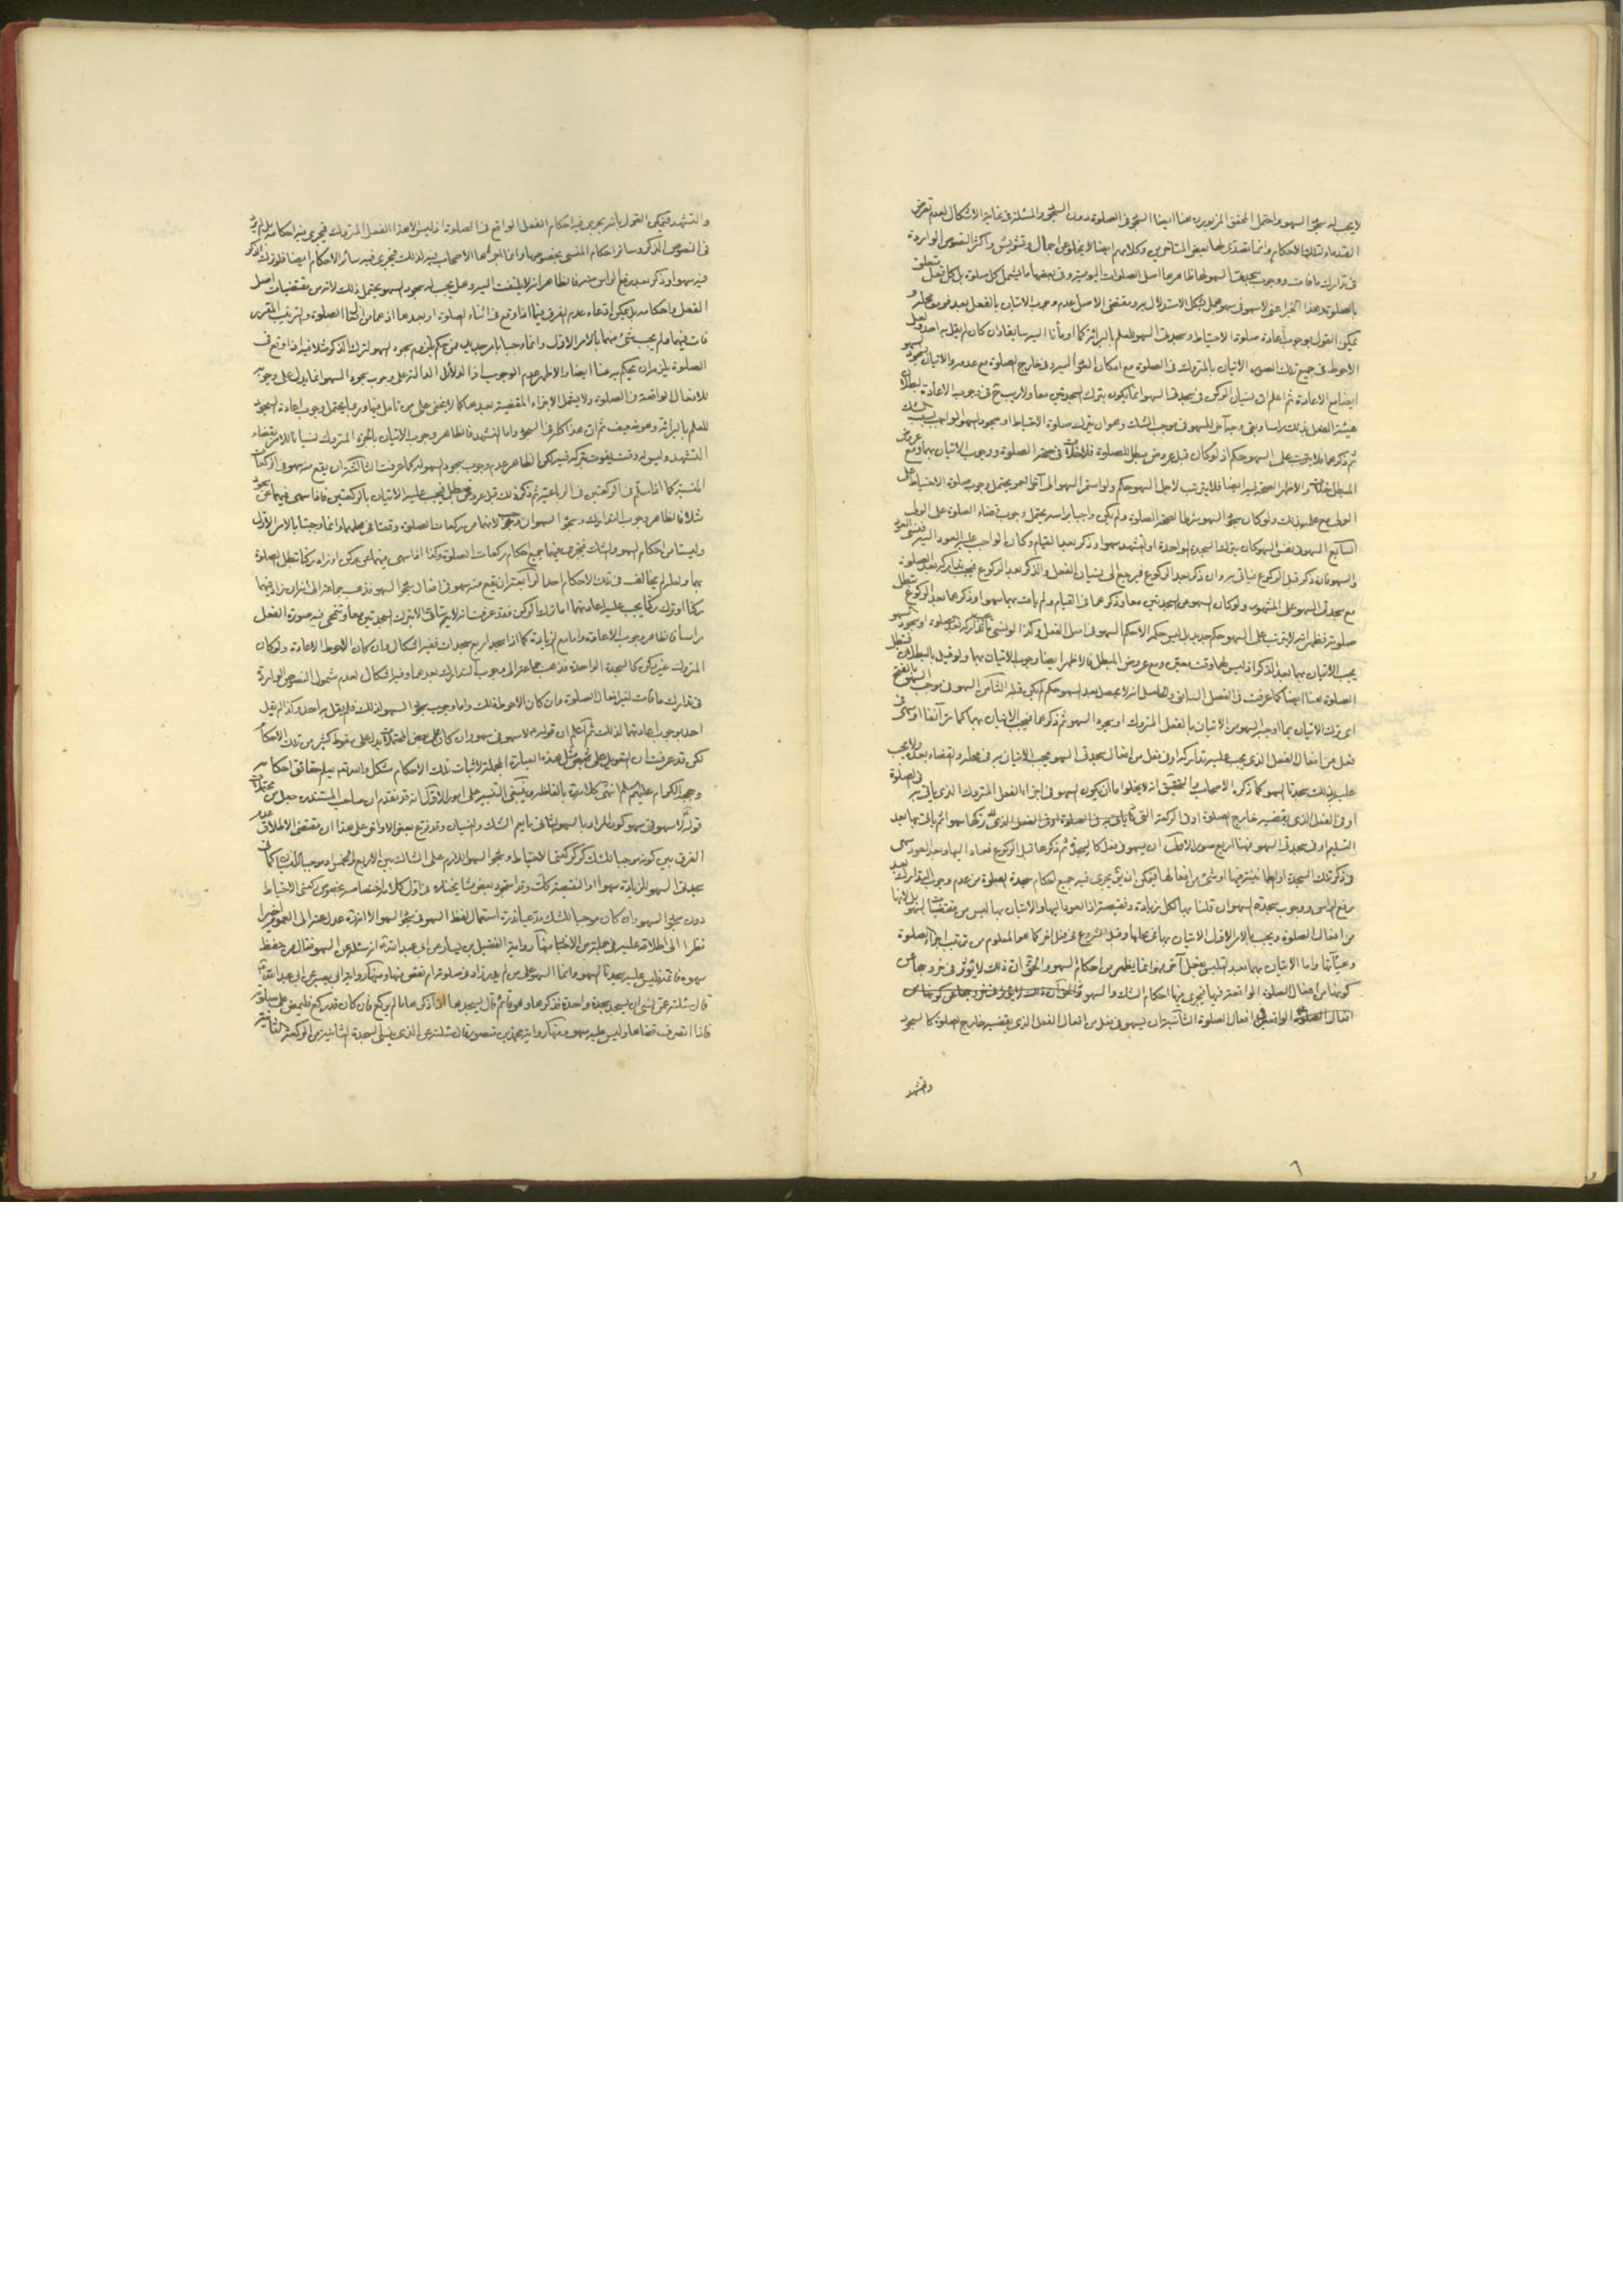 لا يجب له سجود السهو واحتمل المحقق المزبور هنا ايضا السجود في الصلوة دون السجود والمسئلة في غاية الاشكال لعدم تعرض
القدماء لتلك الاحكام وانما تصدى لها بعض المتأخرين وكلامهم ايضا لا يخلو عن اجمال وتشويش واكثر النصوص الواردة
في تدارك ما فات ووجوب سجدتا السهو لها ظاهرها اصل الصلوات اليومية وفي بعضها ما يشمل كل صلوة بل كل فعل يتعلق
بالصلوة وهذا الخبر اعني لا سهو في سهو مجمل يشكل الاستدلال به ومقتضى الاصل عدم وجوب الاتيان بالفعل بعد فوت محله و
يمكن القول بوجوب اعادة صلوة الاحتياط وسجدتي السهو للعلم بالبرائة كما اومأنا اليه سابقا وان كان لم يقل به احد ولعل
الاحوط في جميع تلك الصور الاتيان بالمتروك في الصلوة مع امكان العود اليه وفي خارج الصلوة مع عدمه والاتيان بسجود السهو
ايضا مع الاعادة ثم اعلم ان نسيان الركن في سجدتي السهو انما يكون بترك السجدتين معا ولا ريب ح في وجوب الاعادة لبطلان
هيئة الفعل بذلك راسا وبقى وجه آخر للسهو في موجب الشك وهو ان يترك صلوة الاحتياط او سجود السهو الواجب بسبب الشك
ثم ذكرهما فلا يترتب على السهو حكم اذ لو كان قبل عروض مبطل للصلوة فلا خلاف في صحة الصلوة ووجوب الاتيان بهما ومع عروض
المبطل خلاف والاظهر الصحة فيه ايضا فلا يترتب لاجل السهو حكم ولو استمر السهو الى آخر العمر يحتمل وجوب صلوة الاحتياط على
الولي مع علمه بذلك ولو كان سجود السهو شرطا لصحة الصلوة ولم يكن واجبا براسه يحتمل وجوب قضاء الصلوة على الولي
السابع السهو في نفس السهو كان يترك السجدة الواحدة او التشهد سهوا وذكر بعد القيام وكان الواجب عليه العود اليه فنسى العود
والسهو فان ذكر قبل الركوع فيأتي به وان ذكر بعد الركوع فيرجع الى نسيان الفعل والذكر بعد الركوع فيجب تداركه بعد الصلوة
مع سجدتي السهو على المشهور ولو كان السهو عن السجدتين معا وذكرهما في القيام ولم يأت بهما سهوا وذكرهما بعد الركوع تبطل
صلوته فظهر انه لا يترتب على السهو حكم جديد بل ليس حكمه الا حكم السهو في اصل الفعل وكذا لو نسى تداركه بعد الصلوة او سجود السهو
يجب الاتيان بهما بعد الذكر اذ ليس لهما وقت معين ومع عروض المبطل فالاظهر ايضا وجوب الاتيان بهما ولو قيل بالبطلان فتبطل
الصلوة هنا ايضا كما عرفت في الفصل السابق والحاصل انه لا يحصل بعد السهو حكم لم يكن قبله الثامن السهو في موجب السهو بالفتح
اى ترك الاتيان بما اوجبه السهو من الاتيان بالفعل المتروك او سجود السهو ثم ذكرهما فيجب الاتيان بهما كما مر آنفا او سهى في
فعل من افعال الفعل الذي يجب عليه تداركه او في فعل من افعال سجدتي السهو فيجب الاتيان به في محله والقضاء بعده ولا يجب
عليه بذلك سجدتا السهو كما ذكره الاصحاب والتحقيق انه لا يخلو اما ان يكون السهو في اجزاء الفعل المتروك الذي يأتي به في الصلوة
او في الفعل الذي يقضيه خارج الصلوة او في الركعة التي
التسليم او في سجدتي السهو فهنا اربع صور الاولى ان يسهو في فعل كالسجود ثم ذكرها قبل الركوع فعاد اليها وبعد العود سهى
في ذكر تلك السجدة او الطمأنينة فيها او شئ من افعالها فيمكن ان يق يجري فيه جميع احكام سجدة الصلوة من عدم وجوب التدارك بعد
رفع الراس ووجوب سجدتي السهو ان قلنا بها لكل زيادة ونقيصة اذ العود اليها والاتيان بها ليس من مقتضيات السهو بل لانها
من افعال الصلوة ويجب بالامر الاول الاتيان بها في محلها وقبل الشروع في فعل آخر كما هو المعلوم من ترتيب اجزاء الصلوة
وهيأتها واما الاتيان بها بعد التلبس بفعل آخر فهو انما يظهر من احكام السهو والحق ان ذلك لا يؤثر في خروجها عن
كونها من افعال الصلوة الواقعة فيها فيجري فيها احكام الشك والسهو
افعال الصلوة الواقعة في افعال الصلوة الثانية ان يسهو في فعل من افعال الفعل الذي يقضيه خارج الصلوة كالسجود
والتشهد
٦
والتشهد فيمكن القول بانه يجري فيه احكام الفعل الواقع في الصلوة اذ ليس الا هذا الفعل المتروك فيجري فيه احكامه ولم يرد
في النصوص الذكر وسائر احكام المنسى بخصوصها وانما اجراها الاصحاب فيه لذلك فيجري فيه سائر الاحكام ايضا فلو ترك الذكر
فيه سهوا وذكر بعد رفع الراس منه فالظاهر انه لا يلتفت اليه وهل يجب له سجود السهو يحتمل ذلك لانه من مقتضيات اصل
الفعل واحكامه بل يمكن ادعاء عدم الفرق فيما اذا وقع في اثناء الصلوة او بعدها اذ هما من افعال الصلوة والترتيب المقرر
فات فيهما ولم يجب شئ منهما بالامر الاول وانما وجبا بامر جديد فمن حكم بلزوم سجود السهو لترك الذكر مثلا فيه اذا وقع في
الصلوة يلزمه ان يحكم به هنا ايضا والاظهر عدم الوجوب اذ الدلائل الدالة على وجوب سجود السهو انما يدل على وجوبه
للافعال الواقعة في الصلوة ولا يشمل الاجزاء المقضية بعدها كما لا يخفى على من تامل فيها وربما يحتمل وجوب اعادة السجود
للعلم بالبرائة وهو ضعيف ثم ان هذا كله في السجود واما التشهد فالظاهر وجوب الاتيان بالجزء المتروك نسيانا للامر بقضاء
التشهد وليس له وقت يفوت بتركه فيه لكن الظاهر عدم وجوب سجود السهو له كما عرفت الثالثة ان يقع منه سهو في الركعات
المنسية كما اذا سلم في الركعتين في الرباعية ثم ذكر ذلك قبل عروض مبطل فيجب عليه الاتيان بالركعتين فاذا سهى فيهما عن سجود
مثلا فالظاهر وجوب التدارك وسجود السهو ان وجب لانهما من ركعات الصلوة وقعتا في محلهما وانما وجبتا بالامر الاول
وليستا من احكام السهو والشك فيجري فيهما جميع احكام ركعات الصلوة وكذا اذا سهى فيهما عن ركن او زاد ركنا تبطل الصلوة
بهما ولعله لم يخالف في تلك الاحكام احد الرابعة ان يقع منه سهو في افعال سجود السهو فذهب جماعة الى انه ان زاد فيهما
ركنا او ترك ركنا يجب عليه اعادتهما اما ترك الركن فقد عرفت انه لا يتأتى الا بترك السجدتين معا وتنمحى فيه صورة الفعل
راسا فالظاهر وجوب الاعادة واما مع الزيادة كما اذا سجد اربع سجدات ففيه اشكال وان كان الاحوط الاعادة ولو كان
المتروك غير ركن كالسجدة الواحدة فذهب جماعة الى وجوب التدارك بعدهما وفيه اشكال لعدم شمول النصوص الواردة
في تدارك ما فات لغير افعال الصلوة وان كان الاحوط ذلك واما وجوب سجود السهو لذلك فلم يقل به احد وكذا لم يقل
احد بوجوب اعادتها لذلك ثم اعلم ان قولهم لا سهو في سهو وان كان على بعض المحتملات يدل على سقوط كثير من تلك الاحكام
لكن قد عرفت ان التعويل على مثل هذه العبارة المجملة لاثبات تلك الاحكام مشكل والله تعم يعلم حقائق احكامه
وحججه الكرام عليهم السلم انتهى كلامه بالفاظه وينبغي التنبيه على امور الاول انه قد تقدم ان صاحب المستند جعل من محتملات
قوله لا سهو في سهو كون المراد بالسهو الثاني ما يعم الشك والنسيان وقد فرع بعض الاواخر على هذا ان مقتضى الاطلاق عدم
الفرق بين كونه موجبا للشك كركعتى الاحتياط وسجود السهو اللازم على الشك بين الاربع والخمس او موجبا للنسيان كما في
سجدتي السهو للزيادة سهوا او النقيصة كذلك وقد استجود بعض مشايخنا في اول كلامه اختصاصه بخصوص ركعتى الاحتياط
دون سجود السهو وان كان موجبا للشك مدعيا ندرة استعمال لفظ السهو في سجود السهو الا انه عدل عنه الى العموم اخيرا
نظرا الى اطلاقه عليه في جملة من الاخبار منها رواية الفضيل بن يسار عن ابي عبد الله ع انه سئله عن السهو فقال من حفظ
سهوه فاتمه فليس عليه سجدتا السهو وانما السهو على من لم يدر زاد في صلوته ام نقص منها ومنها رواية ابي بصير عن ابي عبد الله ع
قال سئلته عمن نسى ان يسجد سجدة واحدة فذكرها وهو قائم قال يسجدها اذا ذكرها ما لم يركع فان كان قد ركع فليمض على صلوته
فاذا انصرف قضاها وليس عليه سهو ومنها رواية محمد بن منصور قال سئلته عن الذي ينسى السجدة الثانية من الركعة الثانية